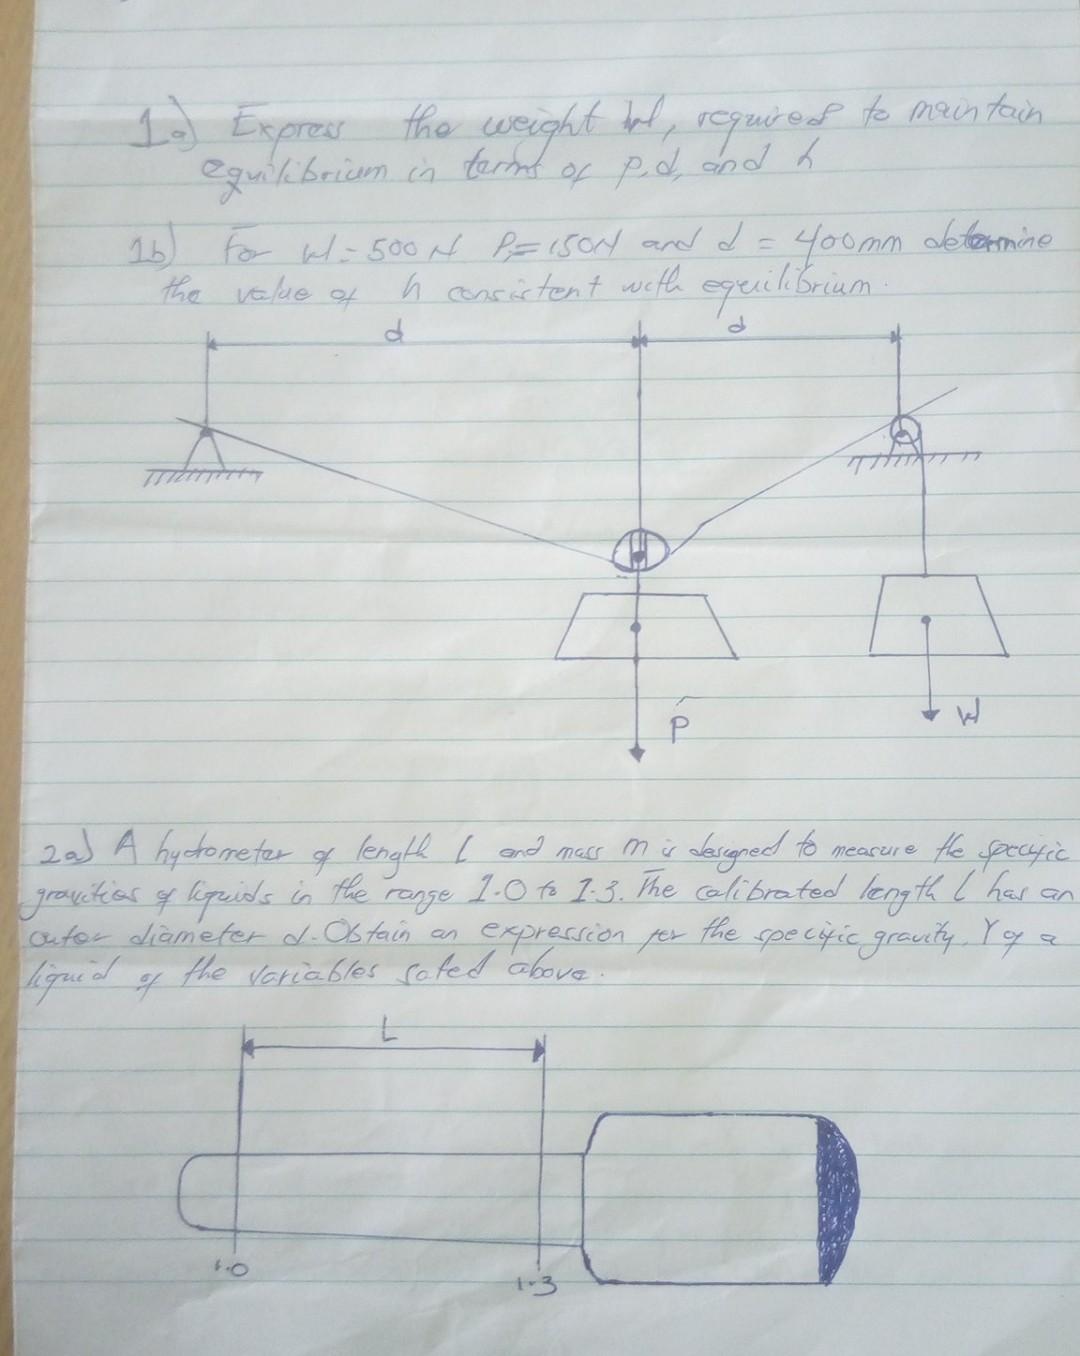 1a) Express the weight W, required to maintain
equilibrium in terms of p, d, and h
1b) For W = 500 N P = 150N and d = 400mm determine
the value of h consistent with equilibrium.
d d
P W
2a) A hydrometer of length L and mass m is designed to measure the specific
gravities of liquids in the range 1.0 to 1.3. The calibrated length L has an
outer diameter d. Obtain an expression for the specific gravity, Y of a
liquid of the variables sated above.
L
1.0
1.3